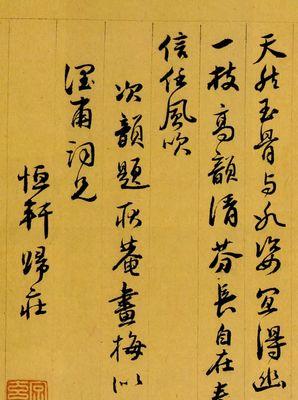 天然玉骨与冰姿宜得幽
一枝高韻清芬長自在春
信任風吹
次韻題耿菴畫梅似
湮甫詞兄
恒軒歸莊